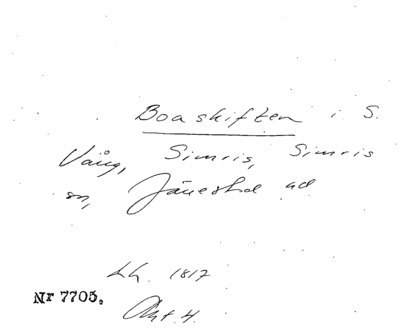 Boaskiften i S.
Vång, Simris, Simris
sn, Järrestad hd
Lh. 1817
Nr 7705.